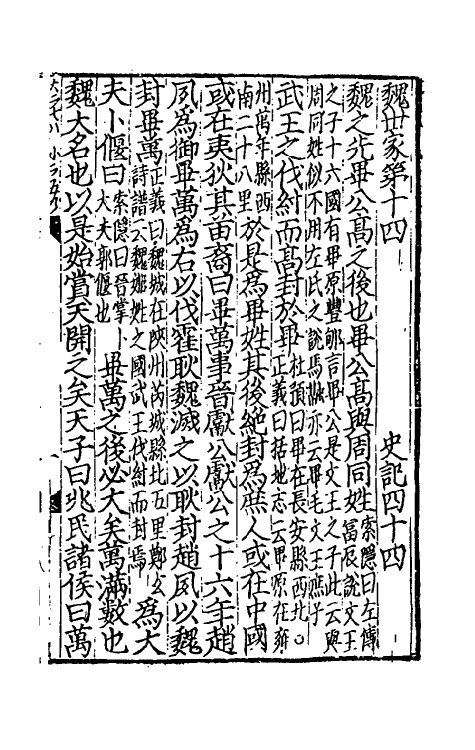 魏世家第十四 史記四十四
魏之先畢公高之後也畢公高與周同姓索隱曰左傳富辰說文王
之子十六國有畢原豐郇言畢公是文王之子此云與周同姓似不用左氏之說馬融亦云畢毛文王庶子
武王之伐紂而高封於畢杜預曰畢在長安縣西北○正義曰括地志云畢原在雍
州萬年縣西南二十八里於是爲畢姓其後絕封爲庶人或在中國
或在夷狄其苗裔曰畢萬事晉獻公獻公之十六年趙
夙爲御畢萬爲右以伐霍耿魏滅之以耿封趙夙以魏
封畢萬正義曰魏城在陝州芮城縣北五里鄭玄詩譜云魏姬姓之國武王伐紂而封焉爲大
夫卜偃曰索隱曰晉掌卜大夫郭偃也畢萬之後必大矣萬滿數也
魏大名也以是始賞天開之矣天子曰兆民諸侯曰萬